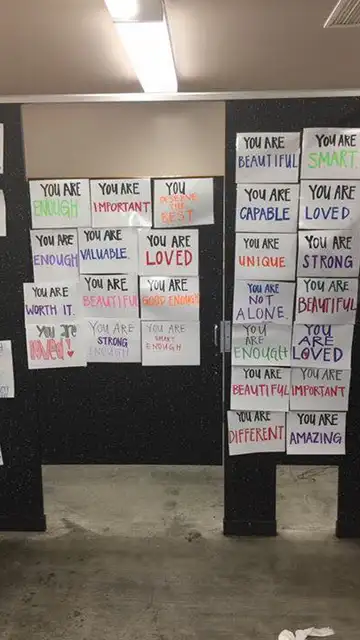 YOU ARE
ENOUGH
YOU ARE
IMPORTANT
YOU
DESERVE
THE
BEST
YOU ARE
ENOUGH
YOU ARE
VALUABLE.
YOU ARE
LOVED
YOU ARE
WORTH IT.
YOU ARE
BEAUTIFUL
YOU ARE
GOOD ENOUGH
YOU are
loved!
YOU ARE
STRONG
ENOUGH
YOU ARE
SMART
ENOUGH
YOU ARE
BEAUTIFUL
YOU ARE
SMART
YOU ARE
CAPABLE
YOU ARE
LOVED
YOU ARE
UNIQUE
YOU ARE
STRONG
YOU ARE
NOT
ALONE
YOU ARE
BEAUTIFUL
YOU ARE
ENOUGH
YOU
ARE
LOVED
YOU ARE
BEAUTIFUL
YOU ARE
IMPORTANT
YOU ARE
DIFFERENT
YOU ARE
AMAZING